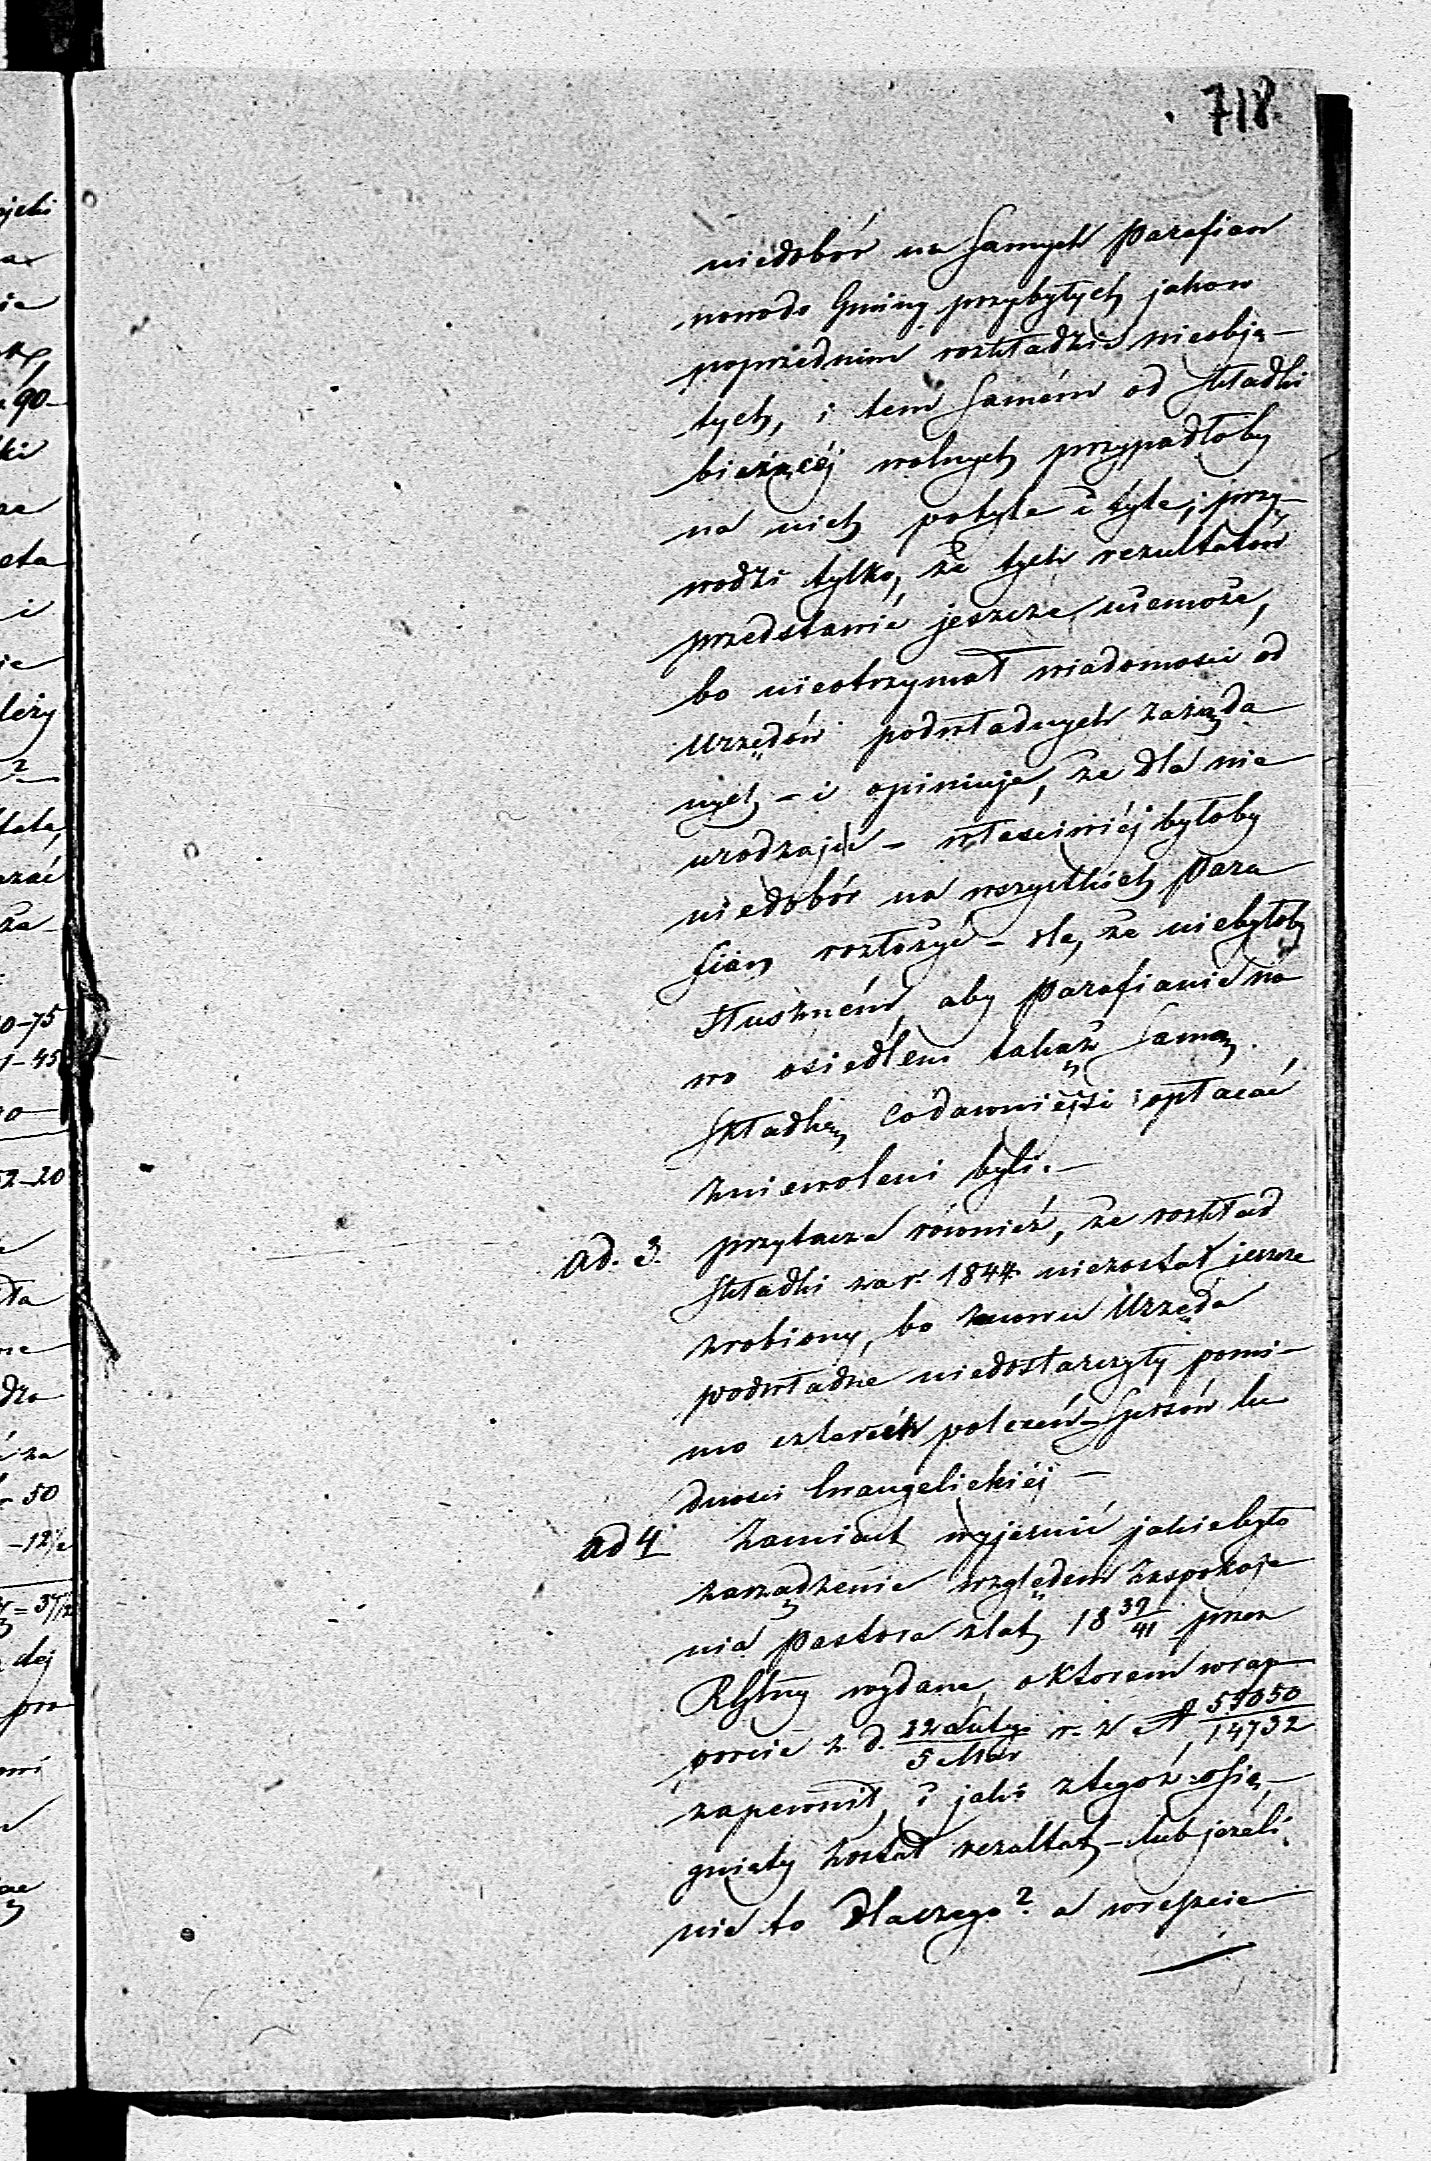 718.
niedobór na samych Parafian
nowo do Gminy przybyłych jako w
poprzednim rozkładzie nieobję-
tych, i tem samém od składki
bieżącéj wolnych przypadłoby
na nich potyle i tyle; przy-
wodzi tylko, że tych rezultatów
przedstawić jeszcze niemoże,
bo nieotrzymał wiadomości od
Urzędów podwładnych zażąda
nych - i opiniuje, że dla nie
urodzaju - właściwiéj byłoby
niedobór na wszystkich Para
fian rozłożyć - ale, że niebyłoby
słuszném, aby Parafianie no
wo osiedleni takąż samą
składkę co dawniejsi opłacać
zniewoleni byli. -
ad. 3. przytacza również, że rozkład
składki za r. 1844 niezostał jeszcze
zrobiony, bo znowu Urzęda
podwładne niedostarczyły pomi-
mo czterech poleceń Spisów lu
dności Ewangelickiéj -
ad 4 Zamiast wyjaśnić jakie było
zarządzenie względem zaspokoje
nia Pastora z lat 18 39/41 przez
wydane, o którem w rap
porcie z d. 22 Lutego/5 Mar r. z № 55050/14732
zapewnił, i jaki z tegoż osią-
gnięty został rezultat - lub jeżeli
nie to dlaczego? a wreszcie